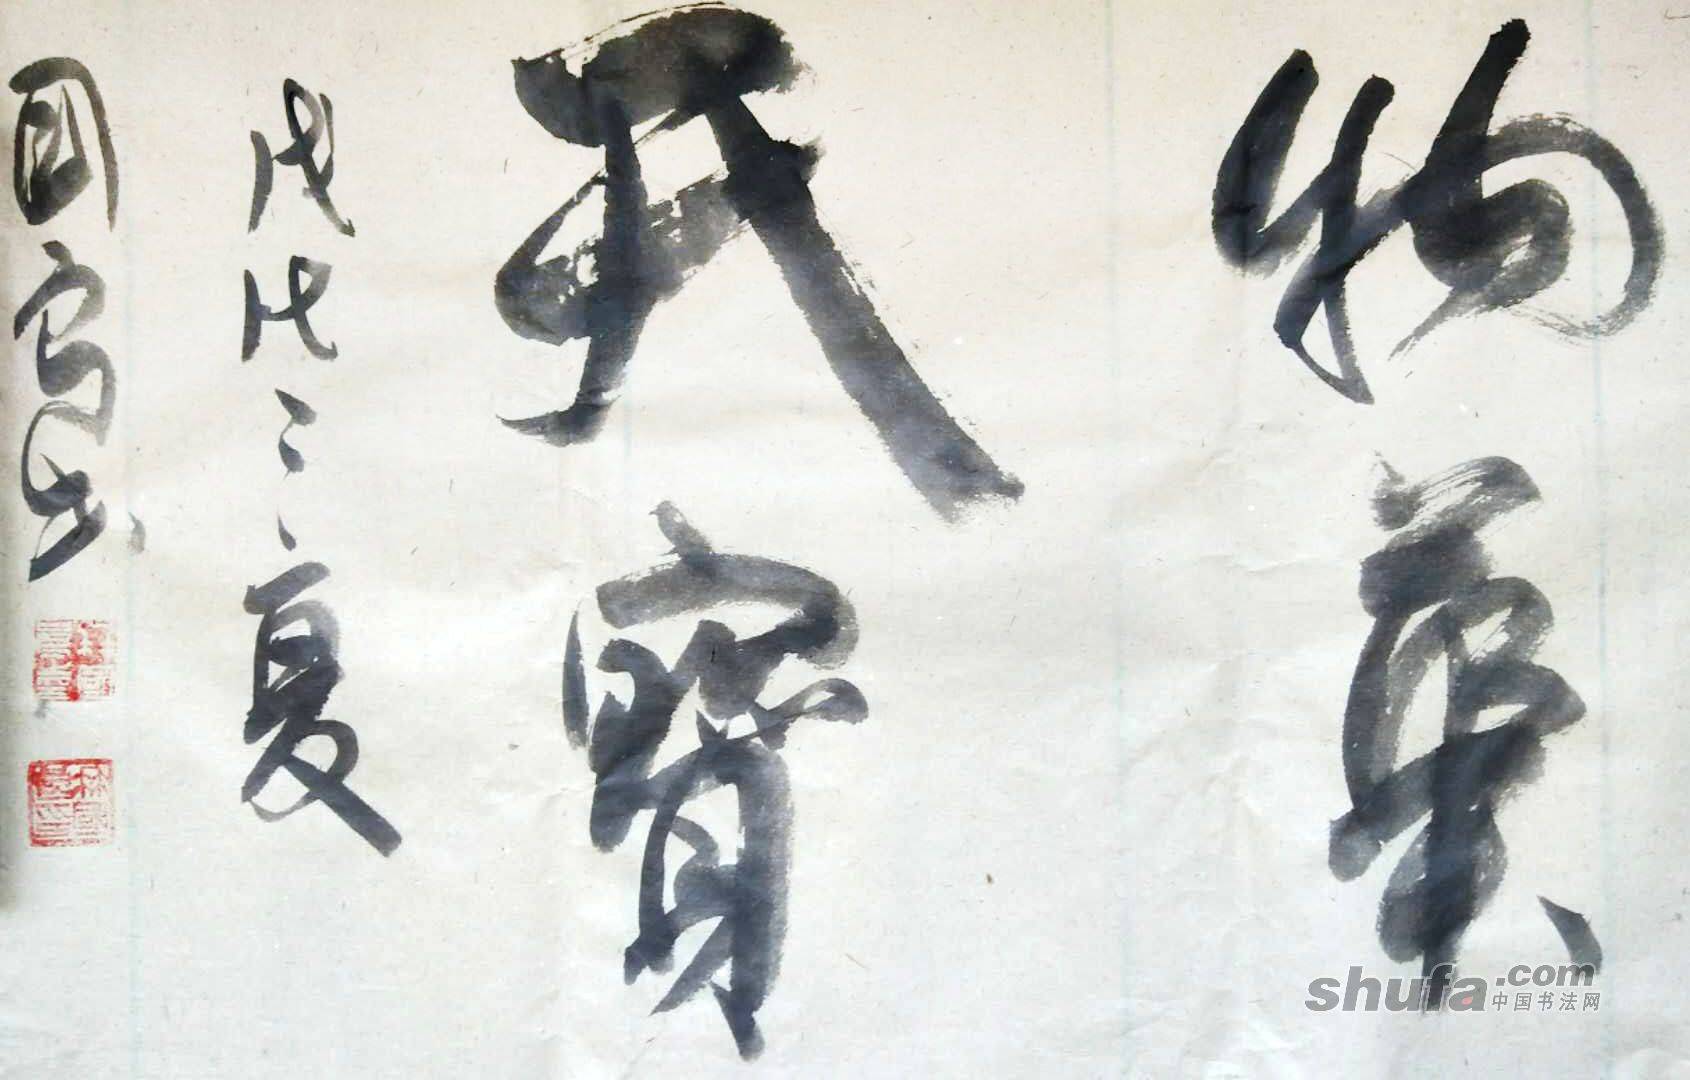 物華
天寶
戊戌之夏
國 书
shufa.com
中国书法网